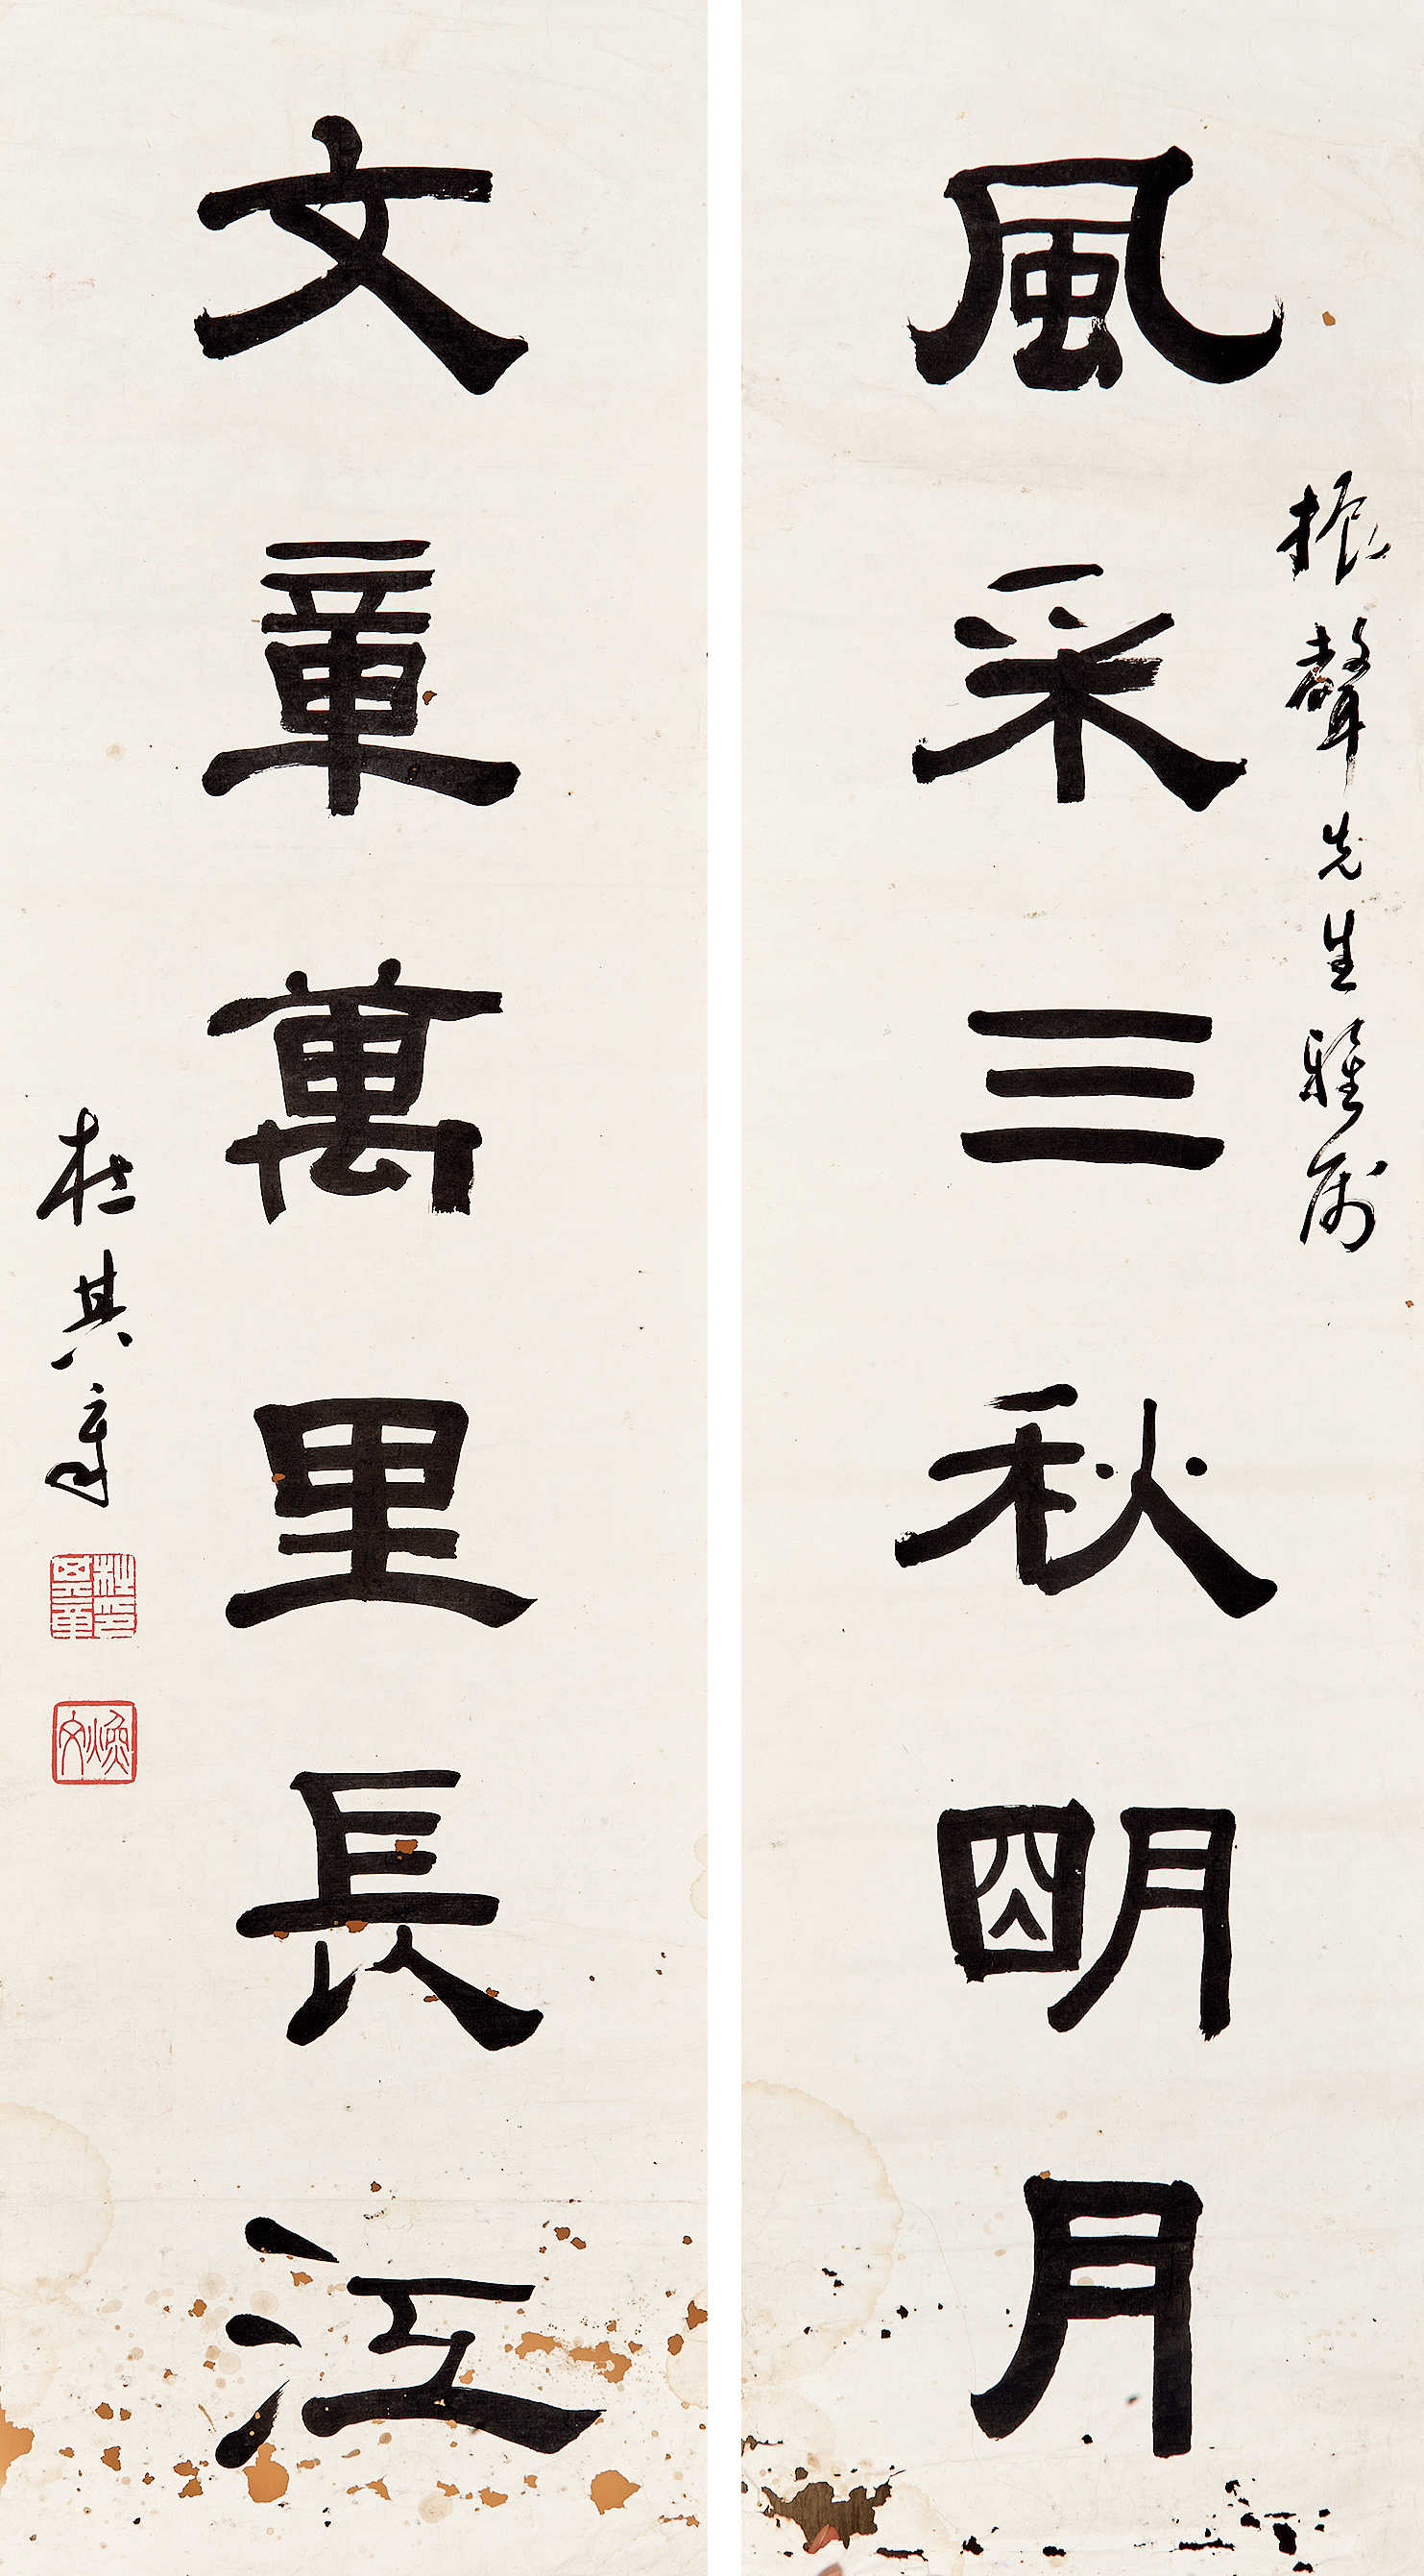 振聲先生雅屬
風采三秋朙月
文章萬里長江
杜其章
杜其章印
煥文